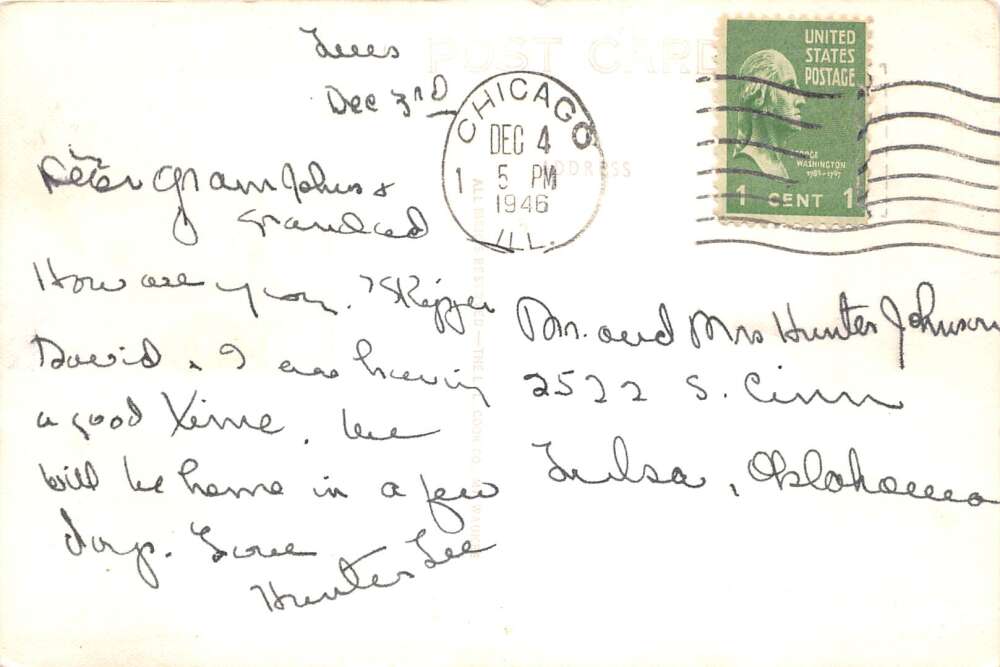 Tues
Dec 3rd
Dear Gram Johns &
Grandad
How are you. Skipper
David & I are having
a good time. We
will be home in a few
days. Love
Hunter Lee
POST CARD
ADDRESS
CHICAGO
DEC 4
1 5 PM
1946
ILL.
UNITED
STATES
POSTAGE
GEORGE
WASHINGTON
1789-1797
1 CENT 1
Mr. and Mrs Hunter Johnson
2522 S. Cinn
Tulsa, Oklahoma